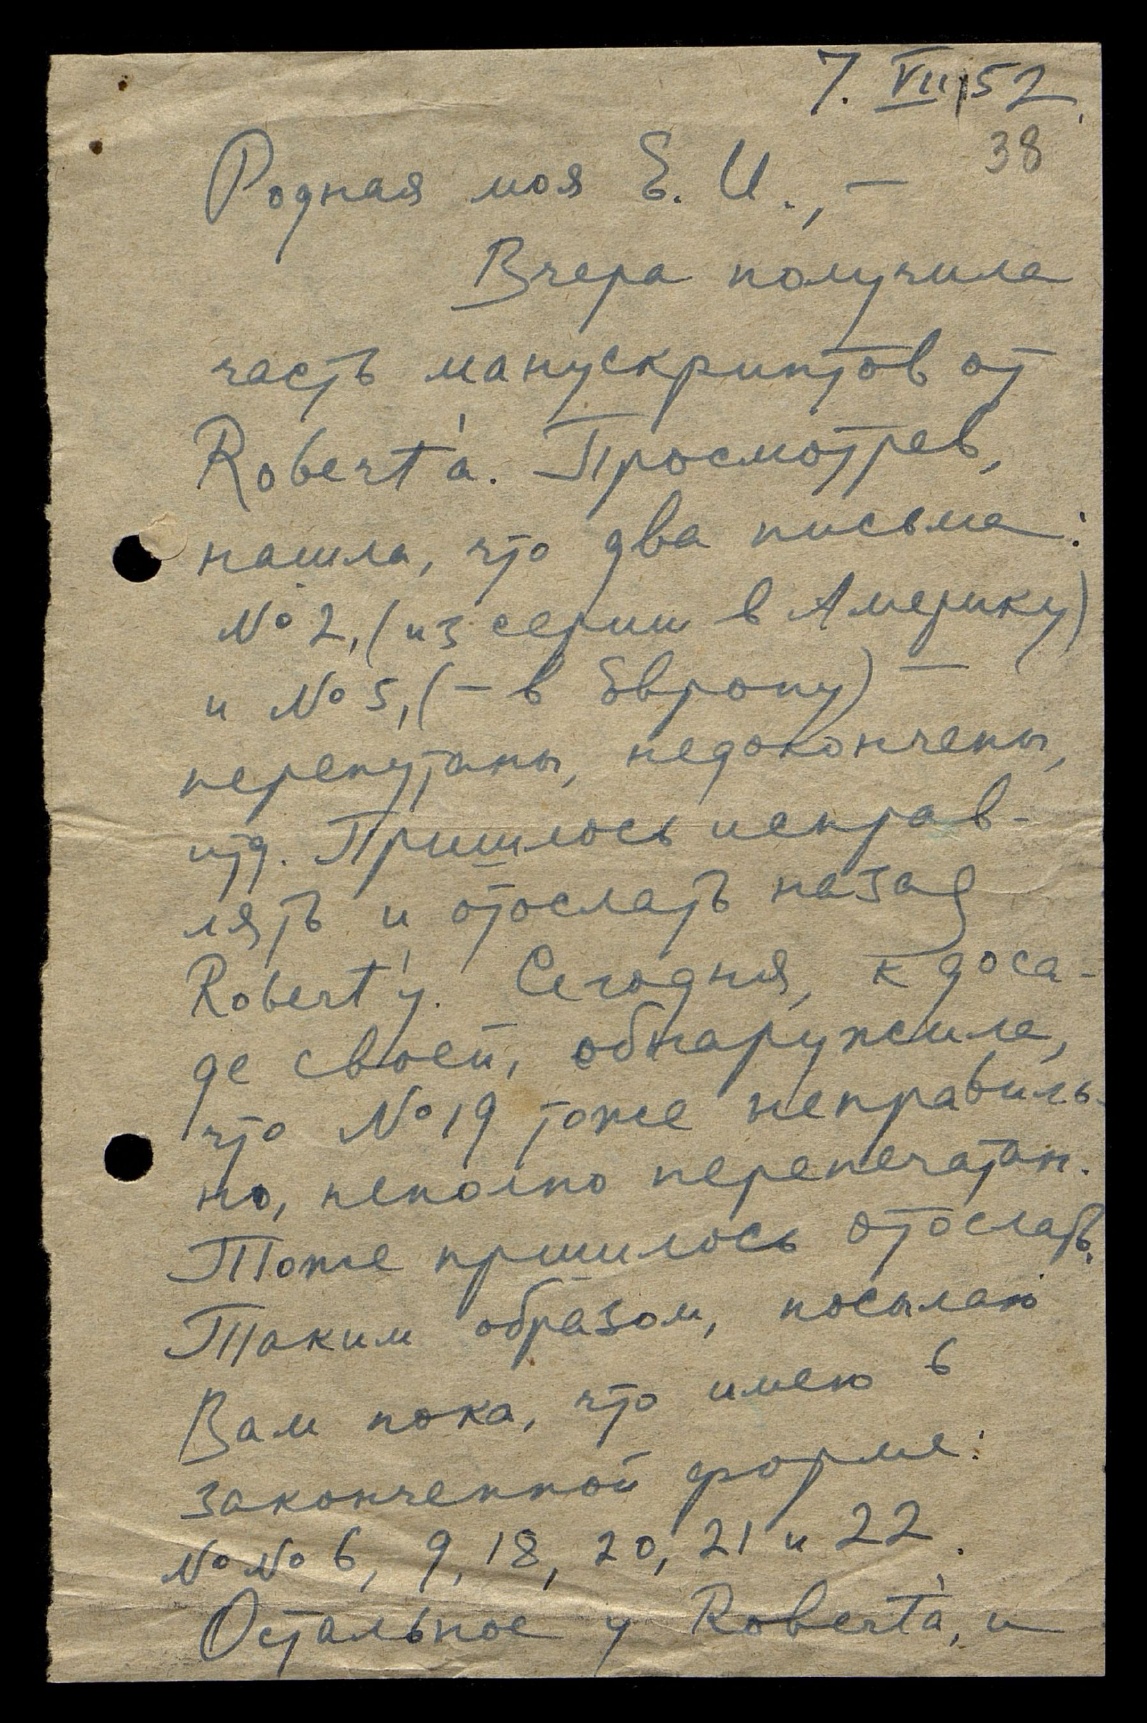 7. VII/52.
38
Родная моя Е. И., —
Вчера получила
часть манускриптов от
Robert'а. Просмотрев,
нашла, что два письма:
№ 2, (из серии в Америку)
и № 5, (— в Европу) —
перепутаны, недокончены,
итд. Пришлось исправ-
лять и отослать назад
Robert'у. Сегодня, к доса-
де своей, обнаружила,
что № 19 тоже неправиль-
но, неполно перепечатан.
Тоже пришлось отослать.
Таким образом, посылаю
Вам пока, что имею в
законченной форме:
№ № 6, 9, 18, 20, 21 и 22.
Остальное у Robert'а, и